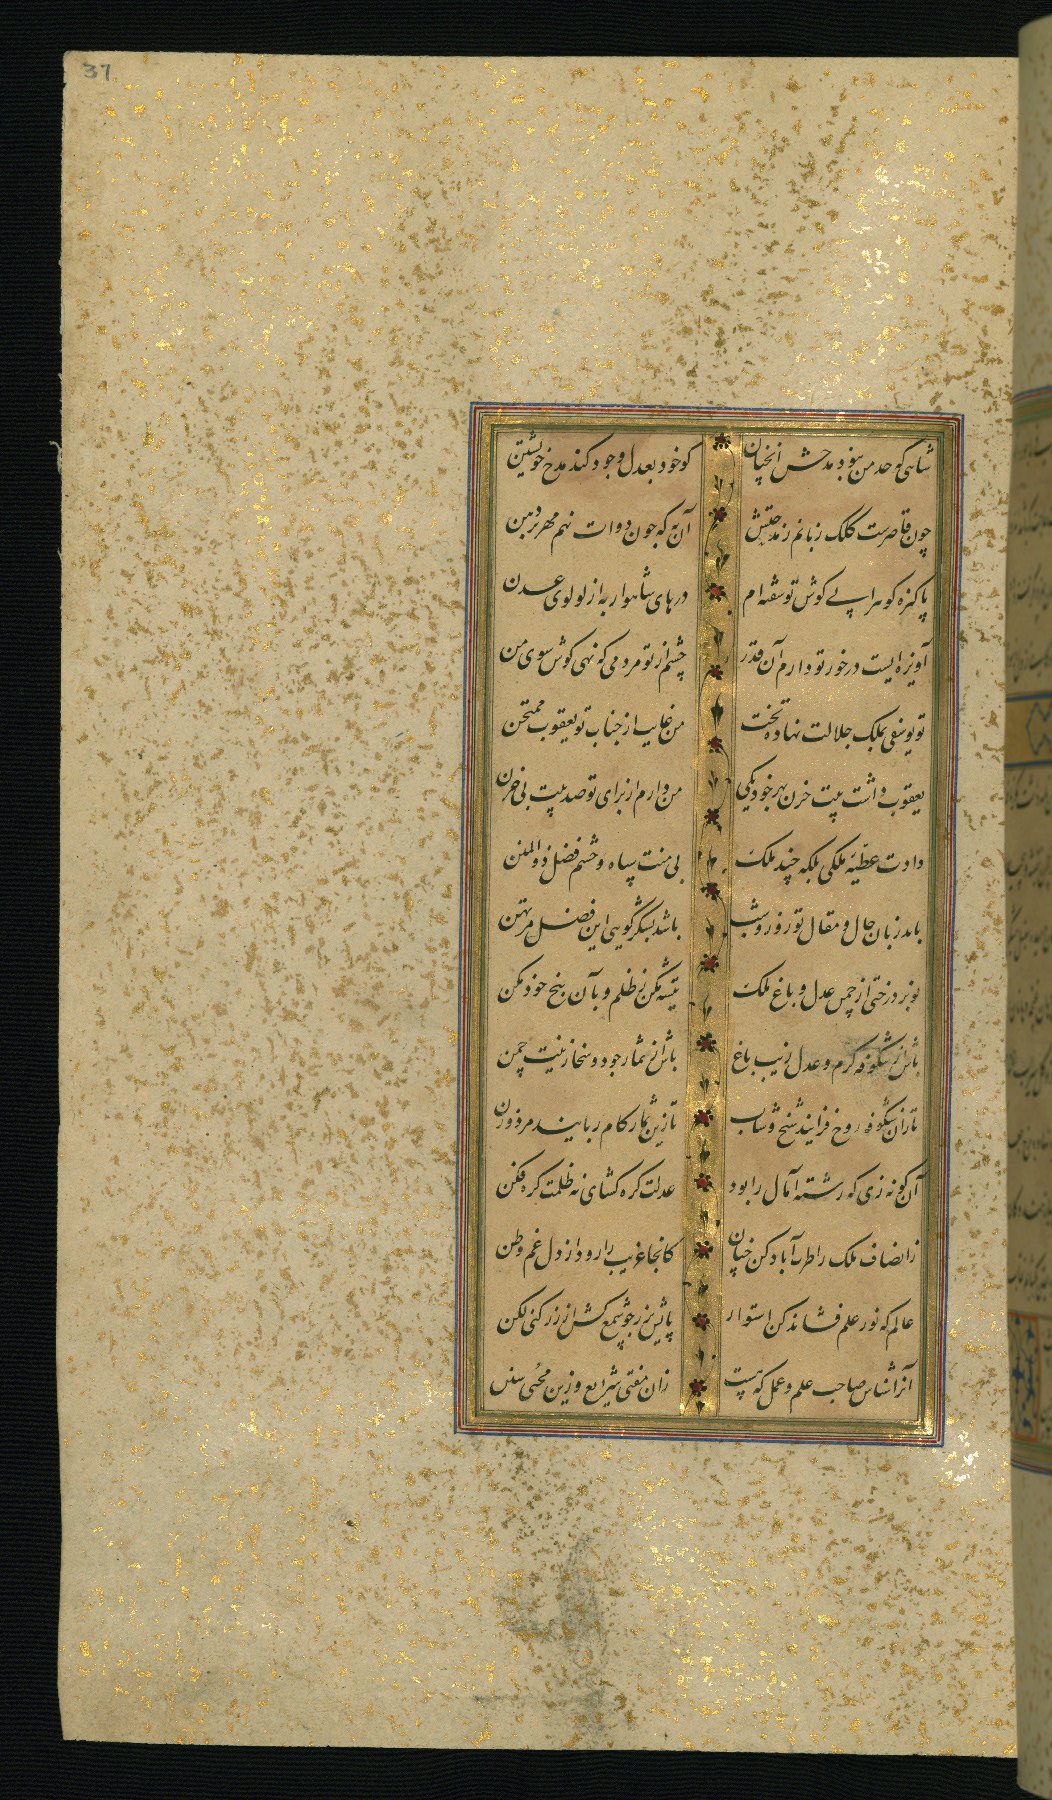 37
شاهی که حد من نبود مدحش آنچنان
کو خود بعدل وجود کند مدح خویشتن
چون قاصرست کلک زبانم ز مدحتش
آن به که چون دوات نهم مهر بر دهن
پاکیزه گوهر از پی گوش تو سفته ام
درهای شاهوار به از لولوی عدن
آویزه ایست در خور تو دارم آن قدر
چشم از تو مردمی که نهی گوش سوی من
تو یوسفی بملک جلالت نهاده تخت
من غایب از جناب تو یعقوب ممتحن
یعقوب داشت بیت حزن بهر خود یکی
من دارم از برای تو صد بیت بی حزن
دادت عطیه ملکی بلکه چند ملک
بی منت سپاه و حشم فضل ذو المنن
باید زبان حال و مقال تو روز و شب
باشد بشکر گویی این فضل مرتهن
نوبر درختی از چمن عدل و باغ ملک
تیشه مکن ز ظلم و بآن بیخ خود مکن
باش از شکوفه کرم و عدل زیب باغ
باش از ثمار جود و سخا زینت چمن
تا زان شکوفه روح فزایند شیخ و شاب
تا زین ثمار کام ربایند مرد و زن
آن گونه زی که رشته آمال را بود
عدلت گره گشای نه ظلمت گره فکن
ز انصاف ملک را طرب آباد کن چنان
کانجا غریب را رود از دل غم وطن
عالم که نور علم فشاند کن استوار
پایش بزر چو شمع کش از زر کنی لگن
آنرا شناس صاحب علم و عمل که هست
زان مفتی شرایع وزین محیی سنن